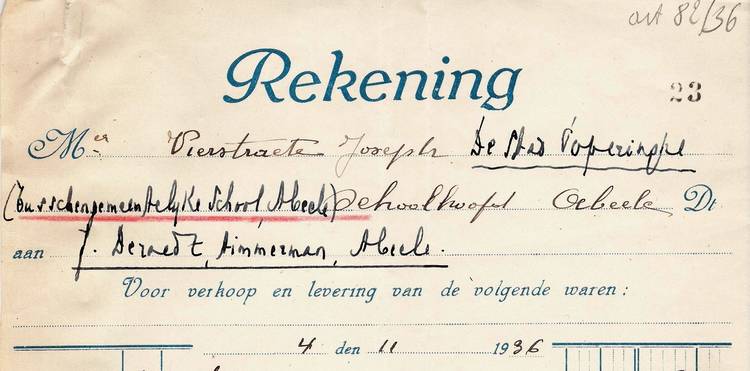 art 82/36
Rekening
23
Mer Vierstraete Joseph De Stad Poperinghe
(Tusschengemeentelyke School, Abeele) Schoolhoofd Abeele Dt
aan J. Deraedt, timmerman, Abeele.
Voor verkoop en levering van de volgende waren :
4 den 11 1936